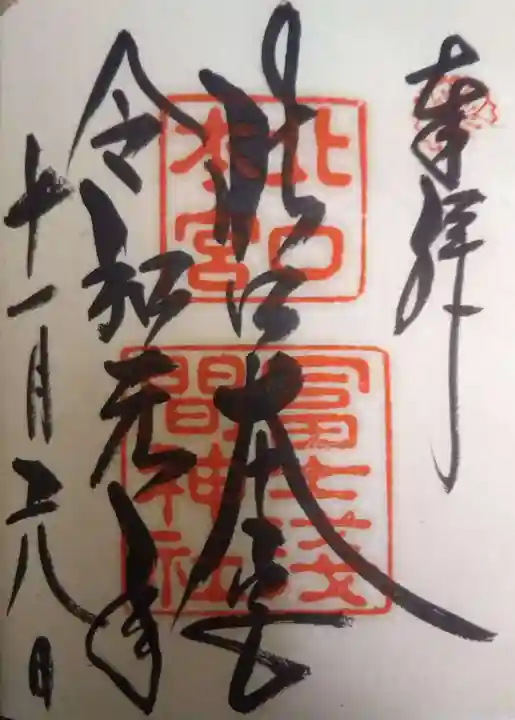 奉拝
北口本宮
北口
本宮
冨士浅
間神社
令和元年
十一月二八日